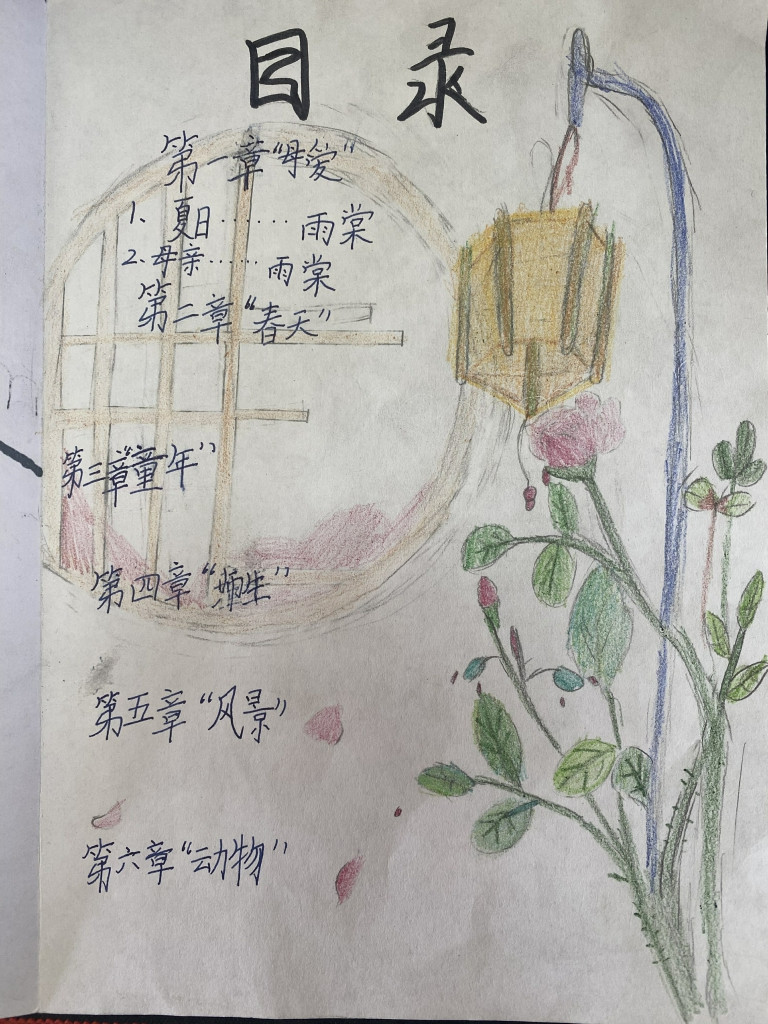 目录
第一章“母爱”
1、夏日……雨棠
2、母亲……雨棠
第二章“春天”
第三章“童年”
第四章“
第五章“风景”
第六章“动物”